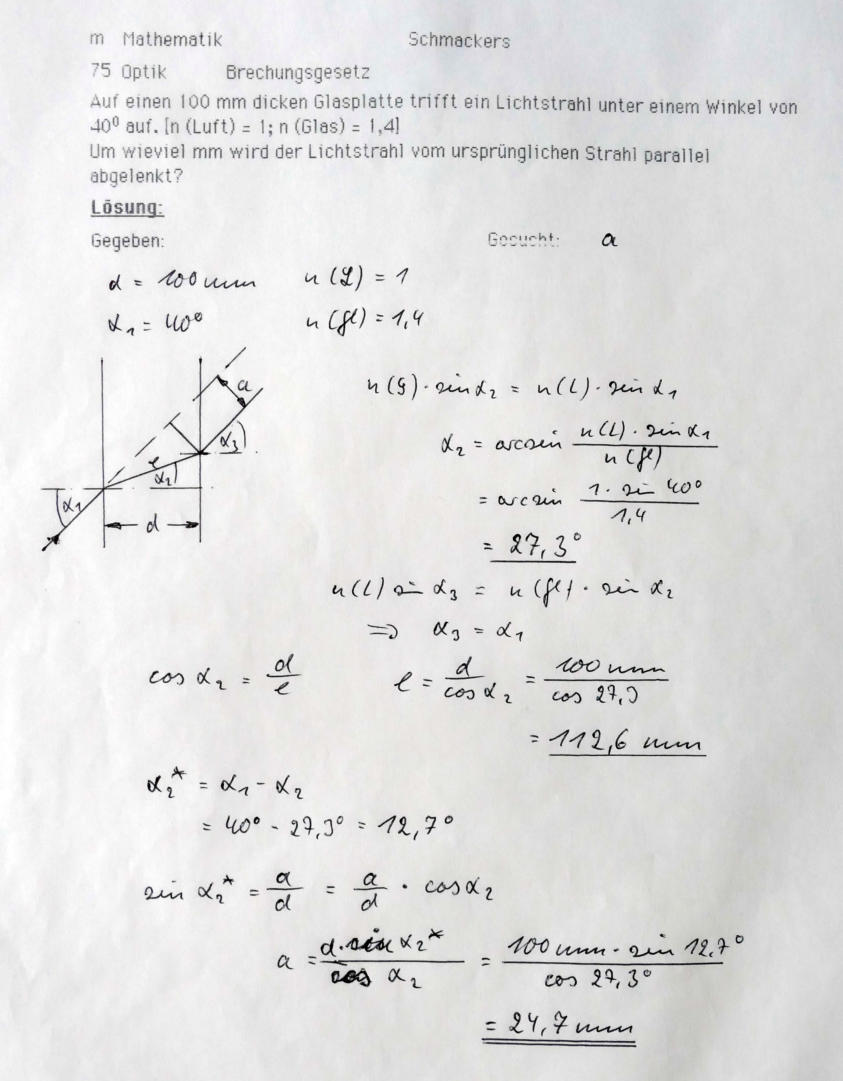 m Mathematik Schmackers
75 Optik Brechungsgesetz
Auf einen 100 mm dicken Glasplatte trifft ein Lichtstrahl unter einem Winkel von
40⁰ auf. [n (Luft) = 1; n (Glas) = 1,4]
Um wieviel mm wird der Lichtstrahl vom ursprünglichen Strahl parallel
abgelenkt?
Lösung:
Gegeben: Gesucht: a
d = 100 mm n (L) = 1
α₁ = 40° n (gl) = 1,4
a
n (G) · sin α₂ = n (L) · sin α₁
α₃
α₂ = arcsin n(L) · sin α₁ / n (gl)
l α₂
α₁
= arcsin 1 · sin 40° / 1,4
d
= 27,3°
n(L) sin α₃ = n (gl) · sin α₂
⇒ α₃ = α₁
cos α₂ = d/l l = d / cos α₂ = 100 mm / cos 27,3
= 112,6 mm
α₂* = α₁ - α₂
= 40° - 27,3° = 12,7°
sin α₂* = a/d = a/d · cos α₂
a = d · sin α₂* / cos α₂ = 100 mm · sin 12,7° / cos 27,3°
= 24,7 mm